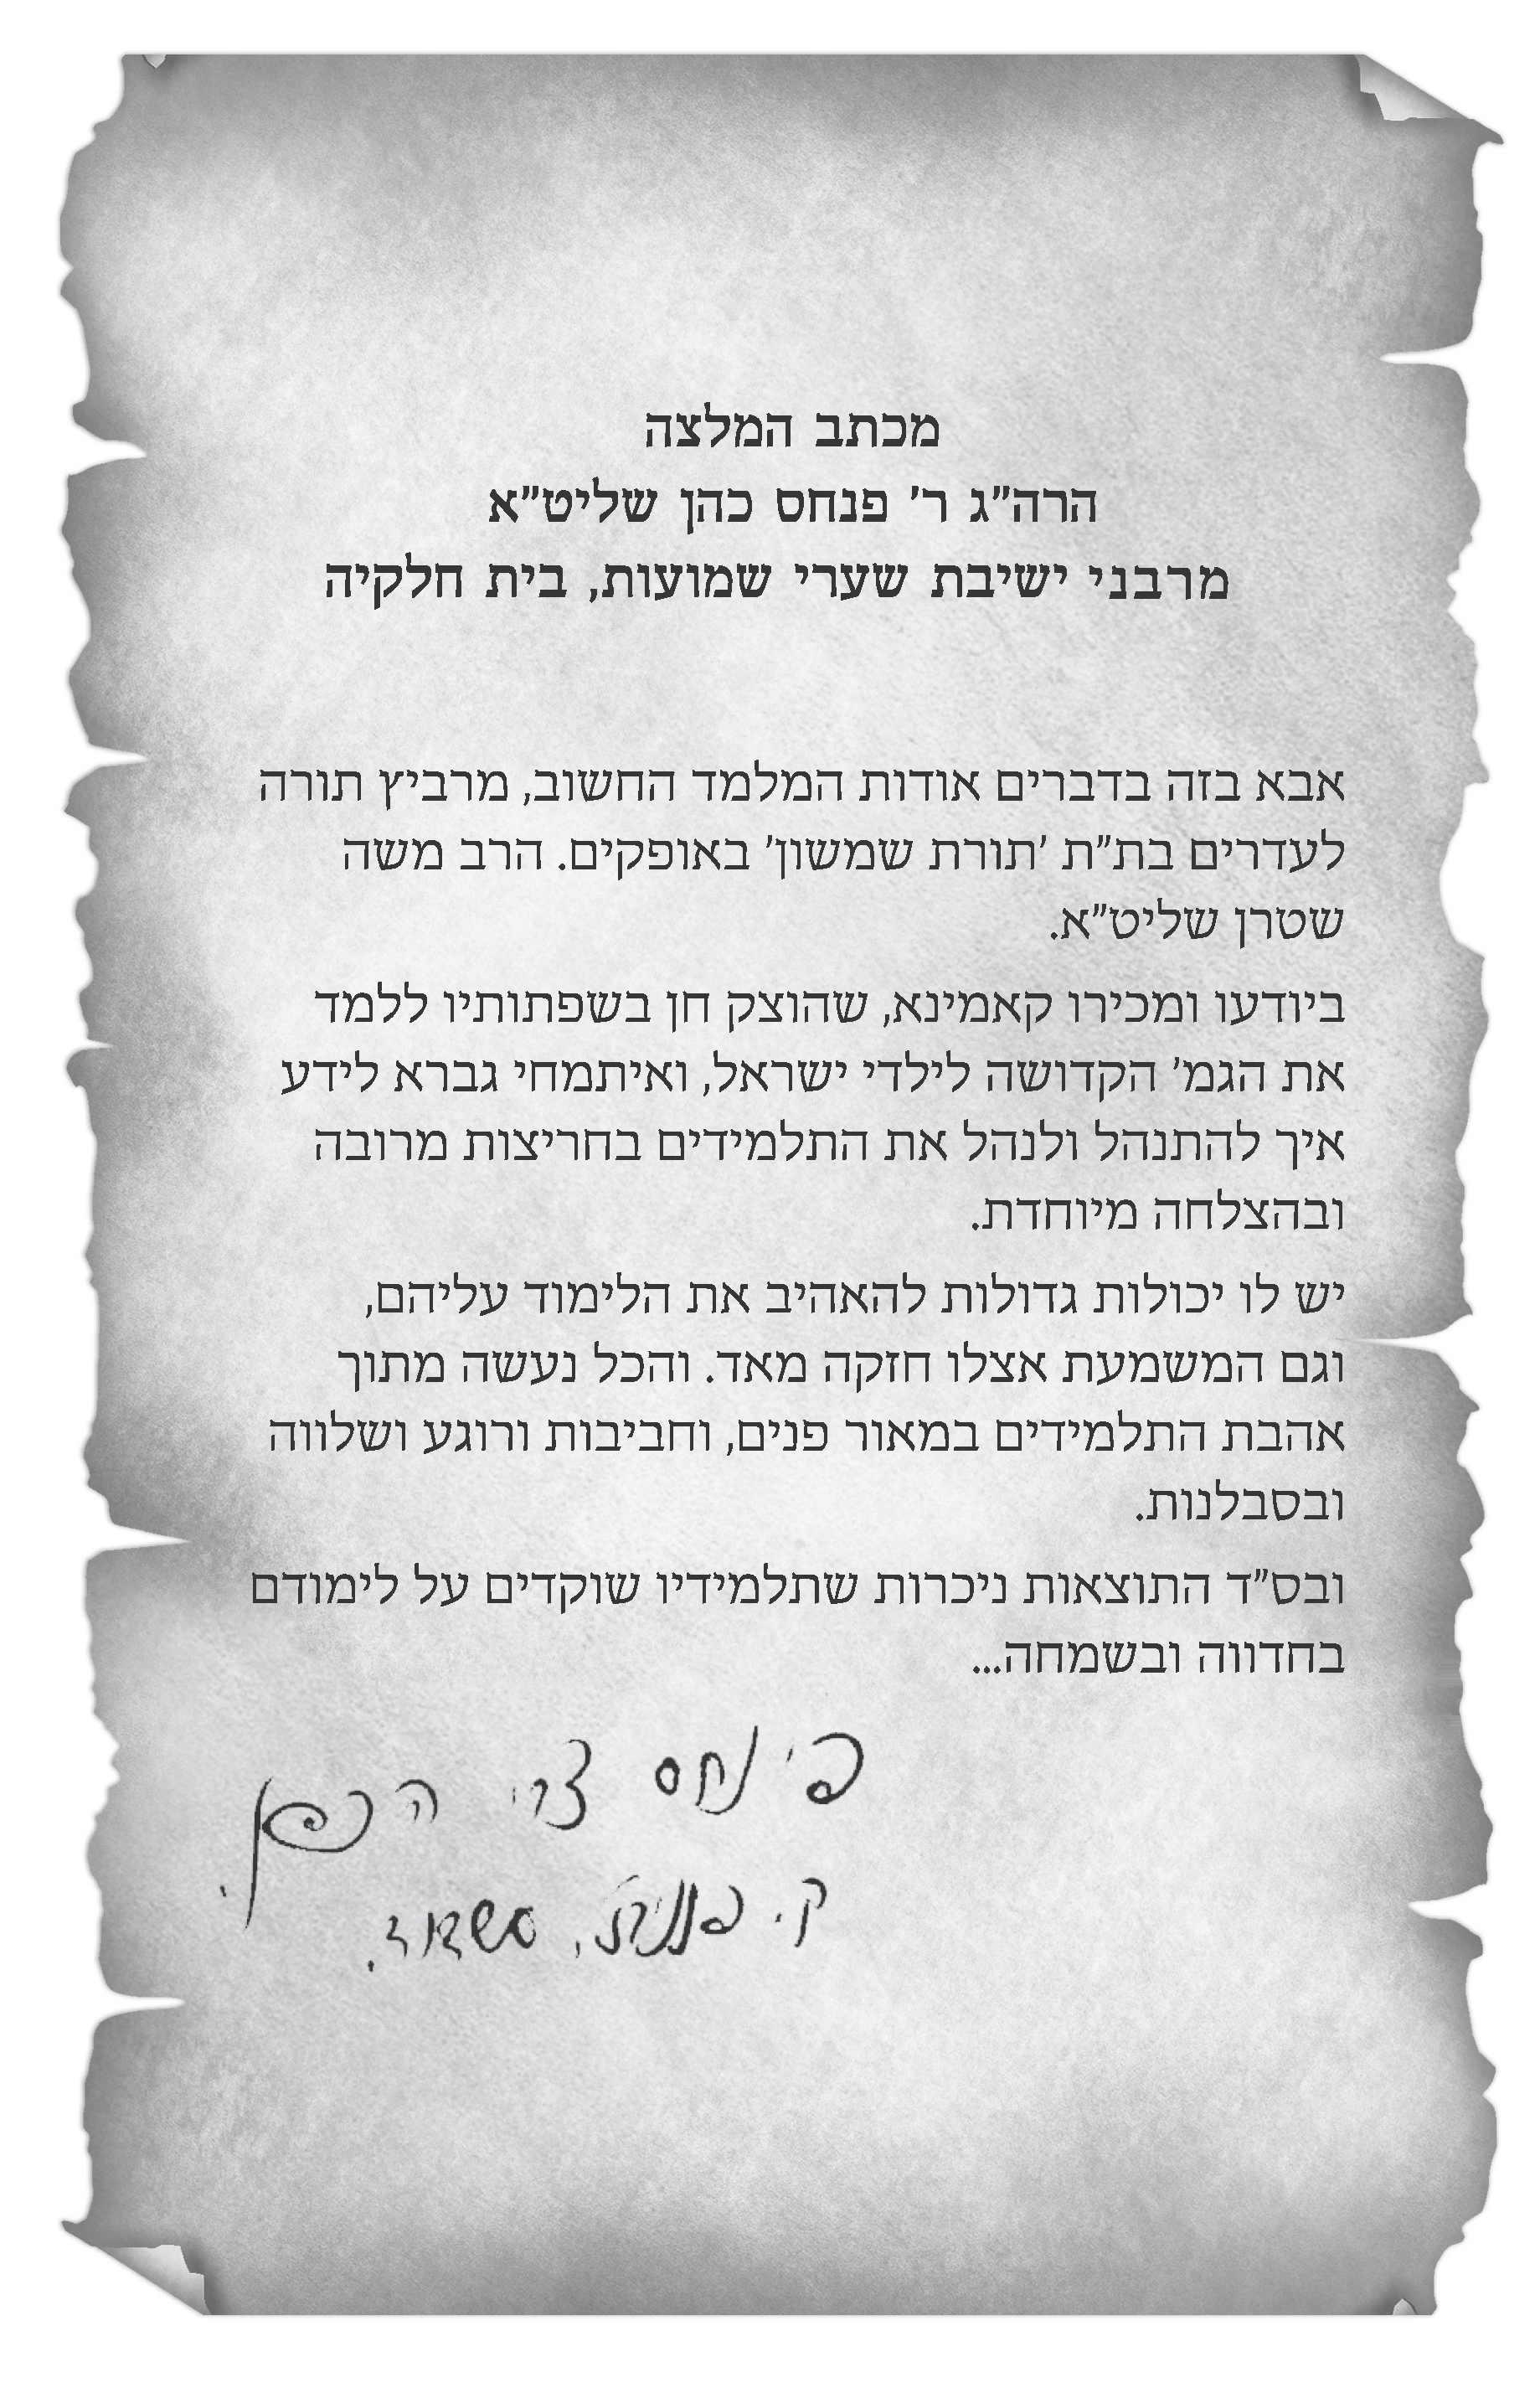 מכתב המלצה
הרה"ג ר' פנחס כהן שליט"א
מרבני ישיבת שערי שמועות, בית חלקיה
אבא בזה בדברים אודות המלמד החשוב, מרביץ תורה
לעדרים בת"ת 'תורת שמשון' באופקים. הרב משה
שטרן שליט"א.
ביודעו ומכירו קאמינא, שהוצק חן בשפתותיו ללמד
את הגמ' הקדושה לילדי ישראל, ואיתמחי גברא לידע
איך להתנהל ולנהל את התלמידים בחריצות מרובה
ובהצלחה מיוחדת.
יש לו יכולות גדולות להאהיב את הלימוד עליהם,
וגם המשמעת אצלו חזקה מאד. והכל נעשה מתוך
אהבת התלמידים במאור פנים, וחביבות ורוגע ושלווה
ובסבלנות.
ובס"ד התוצאות ניכרות שתלמידיו שוקדים על לימודם
בחדווה ובשמחה...
פינחס
ק.